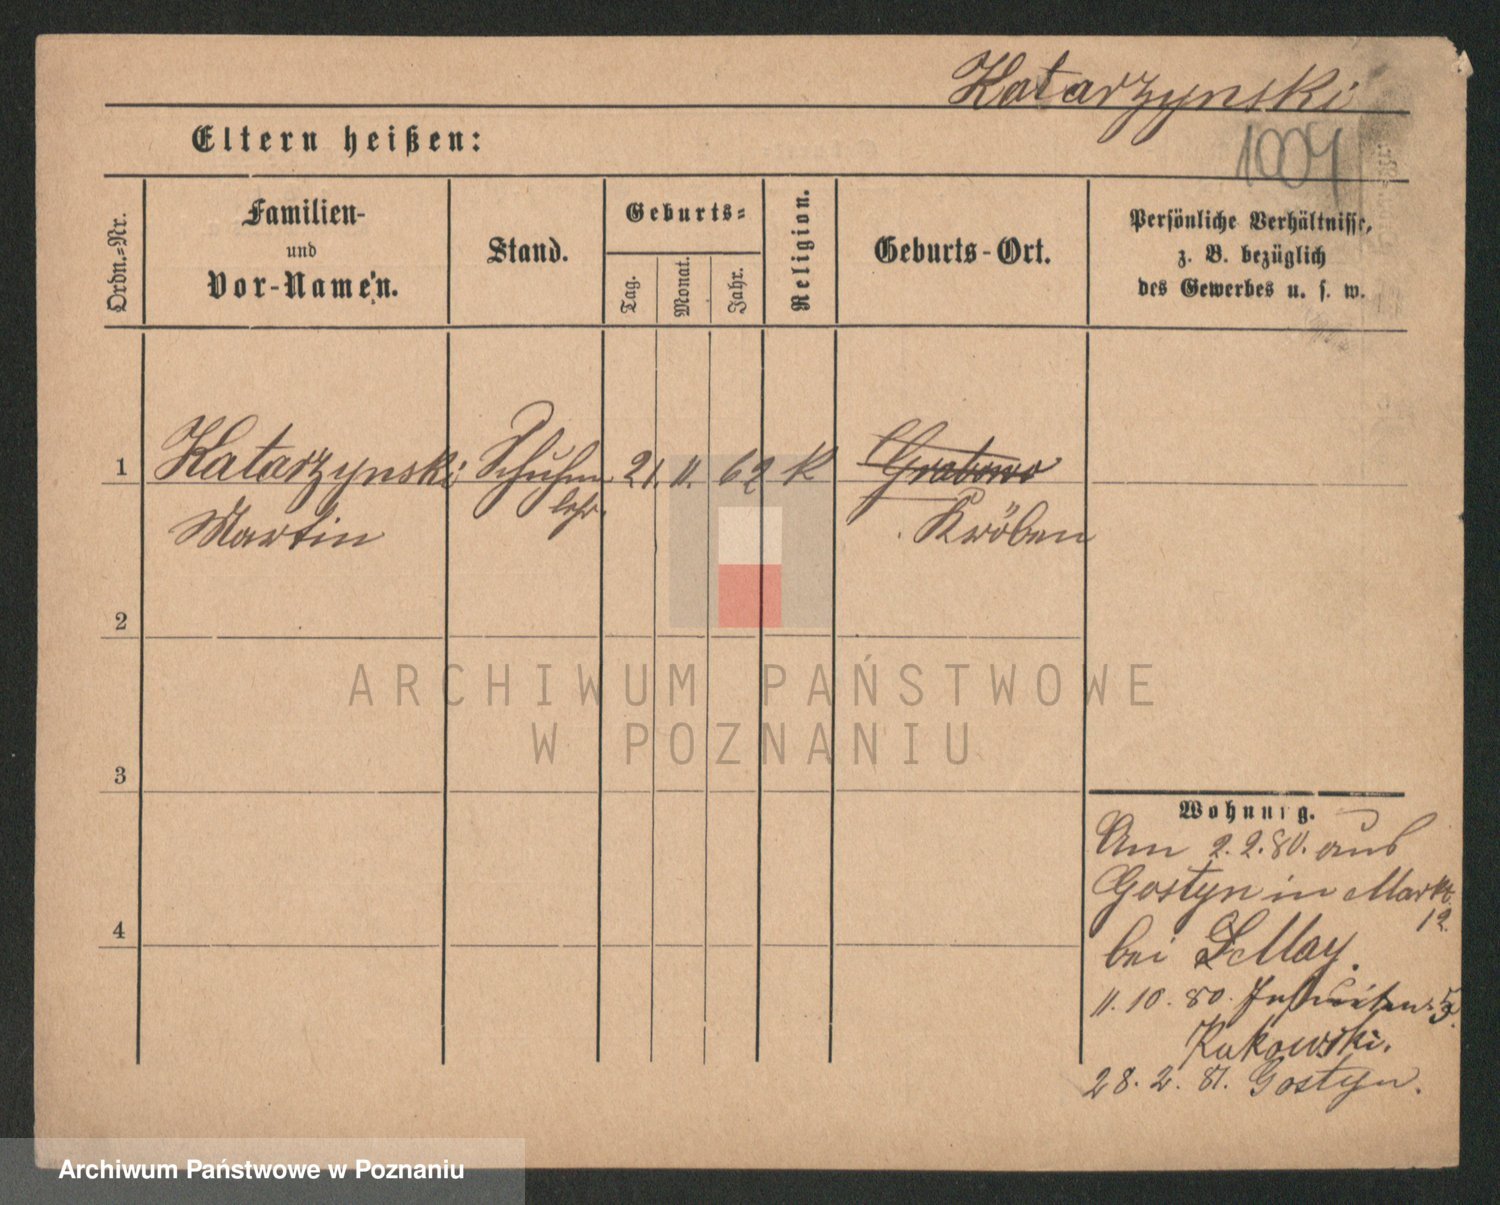 Katarzynski
1007
Eltern heißen:
Ordn.-Nr.
Familien-
und
Vor-Namen.
Stand.
Geburts-
Tag.
Monat.
Jahr.
Religion.
Geburts-Ort.
Persönliche Verhältnisse,
z. B. bezüglich
des Gewerbes u. s. w.
1
Katarzynski
Martin
Schuhm
lehr.
21.
11.
62
K
Grabowo
Kröben
2
3
4
ARCHIWUM PAŃSTWOWE
W POZNANIU
Wohnung.
Am 2.2.80. aus
Gostyn in Markt
12.
bei May.
11.10.80. Jesuiten 5.
Kukowski.
28.2.81. Gostyn.
Archiwum Państwowe w Poznaniu